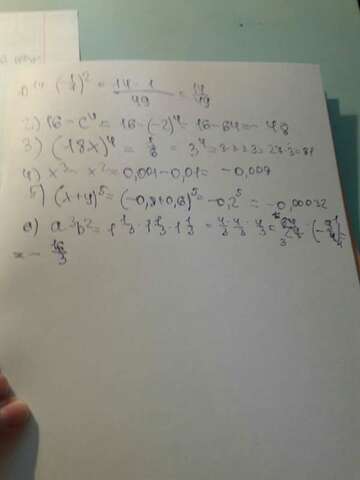 14 (1/7)² = 14 · 1 / 49 = 14/49
2) 16 - c⁴ = 16 - (-2)⁴ = 16 - 64 = - 48
3) (18x)⁴ = = 3⁴ = 3·3·3·3 = 27·3 = 81
4) x³ - x² = 0,001 - 0,01 = -0,009
5) (x+y)⁵ = (-0,8+0,6)⁵ = -0,2⁵ = -0,00032
6) a³b² = 1 1/3 · 1 1/3 · 1 1/3 = 4/3 · 4/3 · 4/3 =
= - 16/3